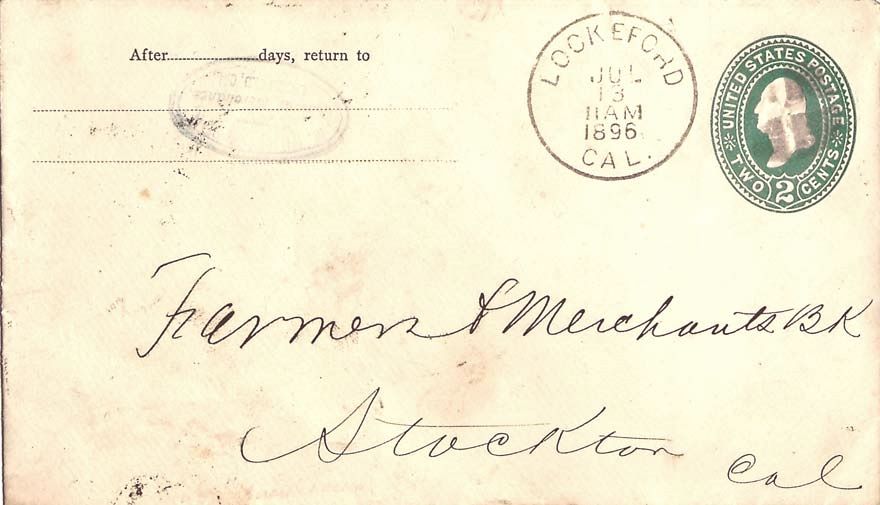 After............days, return to
LOCKEFORD
JUL
13
11AM
1896
CAL.
UNITED STATES POSTAGE
TWO 2 CENTS
Farmers & Merchants BK
Stockton
Cal